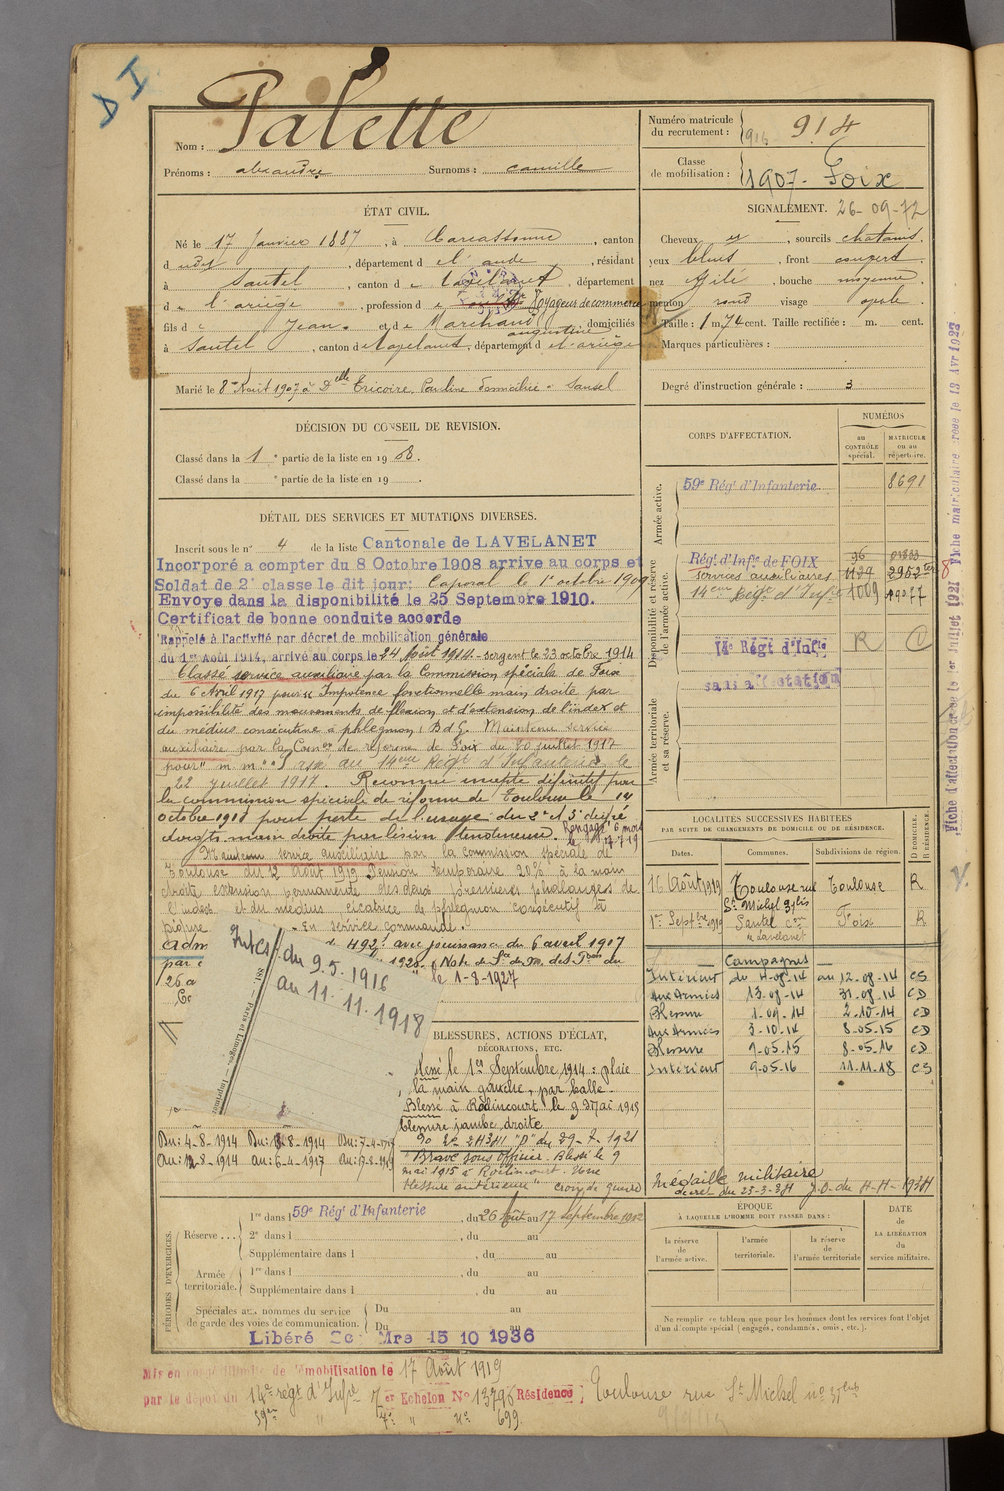 D I
Nom : Palette
Prénoms : alexandre Surnoms : camille
Numéro matricule
du recrutement : 916 914
Classe
de mobilisation : 1907 - Foix
ÉTAT CIVIL.
Né le 17 Janvier 1887, à Carcassonne, canton
d udit, département d e l'aude, résidant
à Sautel, canton d e Lavelanet, département
d e l'ariège, profession d e Voyageur de commerce
fils d e Jean et d e Marchand augustine domiciliés
à Sautel, canton d e Lavelanet, département d e l'ariège
Marié le 8 Août 1907 à Delle Tricoire Pauline domiciliée à Sautel
SIGNALEMENT. 26-09-72
Cheveux et, sourcils chatains,
yeux bleus, front couvert,
nez effilé, bouche moyenne,
menton rond visage ovale.
Taille : 1 m. 74 cent. Taille rectifiée : m. cent.
Marques particulières :
Degré d'instruction générale : 3
DÉCISION DU CONSEIL DE REVISION.
Classé dans la 1e partie de la liste en 1908.
Classé dans la e partie de la liste en 19 .
DÉTAIL DES SERVICES ET MUTATIONS DIVERSES.
Inscrit sous le n° 4 de la liste Cantonale de LAVELANET
Incorporé a compter du 8 Octobre 1908 arrive au corps et
Soldat de 2e classe le dit jour: Caporal le 1er octobre 1909
Envoye dans la disponibilité le 25 Septembre 1910.
Certificat de bonne conduite accorde
Rappelé à l'activité par décret de mobilisation générale
du 1er Août 1914, arrivé au corps le 24 Août 1914 - sergent le 23 octobre 1914
Classé service auxiliaire par la Commission spéciale de Foix
du 6 Avril 1917 pour "Impotence fonctionnelle main droite par
impossibilité des mouvements de flexion et d'extension de l'index et
du médius consécutive à phlegmon" B.d.G. Maintenu service
auxiliaire par la Comon de réforme de Foix du 20 juillet 1917
pour "m. m." Passé au 14eme Régt d'Infanterie le
22 juillet 1917. Reconnu inapte définitif par
la commission spéciale de réforme de Toulouse le 14
octobre 1918 pour perte de l'usage du 2e et 3e
doigts main droite par lésion tendineuse. Rengagé 6 mois
le 17-7-19
Maintenu service auxiliaire par la commission spéciale de
Toulouse du 12 Août 1919 Pension temporaire 20% à la main
droite extension permanente des deux premières phalanges de
l'index et du médius cicatrice de phlegmon consécutif à
piqûre - En service commandé -
Adm
de 492f avec jouissance du 6 avril 1917
par 1920. (Note de
26 le 1-8-1927
Intes du 9.5.1916
au 11.11.1918
Paris et Limoges. - Imprimerie
BLESSURES, ACTIONS D'ÉCLAT,
DÉCORATIONS, ETC.
Blessé le 1er Septembre 1914 : plaie
à la main gauche, par balle -
Blessé à Roclincourt le 9 Mai 1915
blessure jambe droite
"D" du 29-7-1921
"Brave sous officier. Blessé le 9
mai 1915 à Roclincourt. Une
blessure antérieure" croix de guerre
Du: 4-8-1914 Du: 8-1914 Du: 7-4-1917
Au: 12-8-1914 au: 6-4-1917 Au: 17-8-1919
CORPS D'AFFECTATION.
NUMÉROS
au CONTRÔLE spécial.
MATRICULE ou au répertoire.
Armée active.
59e Régt d'Infanterie 8691
Disponibilité et réserve de l'armée active.
Régt d'Infie de FOIX 96
services auxiliaires 1129 2952 ter
14eme Régt d'Infie 1009
14e Régt d'Infie R
sans affectation
Armée territoriale et sa réserve.
LOCALITÉS SUCCESSIVES HABITÉES
PAR SUITE DE CHANGEMENTS DE DOMICILE OU DE RÉSIDENCE.
Dates. Communes. Subdivisions de région. D DOMICILE. R RÉSIDENCE.
16 Août 1919 Toulouse rue St Michel 37bis Toulouse R
1er Septbre 1919 Sautel con de Lavelanet Foix R
Campagnes
Intérieur du 4-08-14 au 12-08-14 CS
aux Armées 13-08-14 31-08-14 CD
Blessure 1-09-14 2-10-14 CD
aux Armées 3-10-14 8-05-15 CD
Blessure 9-05-15 8-05-16 CD
Intérieur 9-05-16 11-11-18 CS
Médaille militaire
décret du 23-3-34 J.O. du 4-4-1934
PÉRIODES D'EXERCICES.
Réserve ... 1re dans l 59e Régt d'Infanterie, du 26 Août au 17 septembre 1912
2e dans l , du au
Supplémentaire dans l , du au
Armée territoriale. 1re dans l , du au
Supplémentaire dans l , du au
Spéciales aux hommes du service
de garde des voies de communication. Du au
Du au
Libéré 15 10 1936
ÉPOQUE
À LAQUELLE L'HOMME DOIT PASSER DANS :
la réserve de l'armée active.
l'armée territoriale.
la réserve de l'armée territoriale
DATE de LA LIBÉRATION du service militaire.
Ne remplir ce tableau que pour les hommes dont les services font l'objet
d'un décompte spécial (engagés, condamnés, omis, etc.).
Mis en congé illimité de démobilisation le 17 Août 1919
par le dépôt du 14e régt d'Infie 7er Echelon N° 13795 Résidence ; Toulouse rue St Michel no 37bis
59eme " 7e " No 699
Fiche d'affectation créée le 1er Juillet 1921 Fiche matriculaire créée le 13 Avr 1923